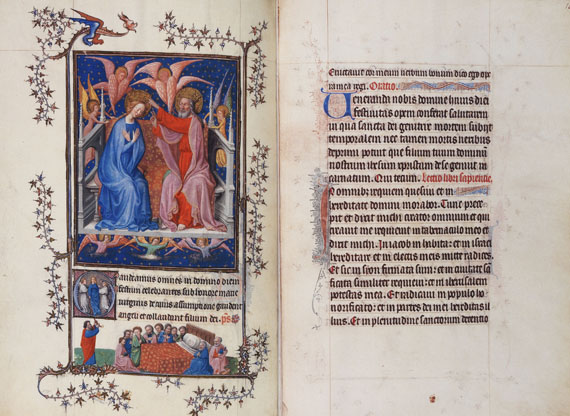 audeamus omnes in domino diem
festum celebrantes sub honore marie
virginis de cuius assumptione gaudent
angeli et collaudant filium dei. ps
Eructavit cor meum verbum bonum dico ego ope
ra mea regi. Oratio.
Veneranda nobis domine huius diei
festivitas opem conferat salutarem
in qua sancta dei genitrix mortem subiit
temporalem nec tamen mortis nexibus
deprimi potuit que filium tuum dominum
nostrum ihesum xpristum de se genuit in
carnatum. Qui tecum. Lectio libri sapientie.
In omnibus requiem quesivi et in
hereditate domini morabor. Tunc prece
pit et dixit michi creator omnium et qui
creavit me requievit in tabernaculo meo et
dixit michi. In iacob inhabita: et in israel
hereditare et in electis meis mitte radices.
Et sic in syon firmata sum: et in civitate sa
cificata similiter requievi: et in iherusalem
potestas mea. Et radicavi in populo ho
norificato: et in partes dei mei hereditas il
lius. Et in plenitudine sanctorum detentio